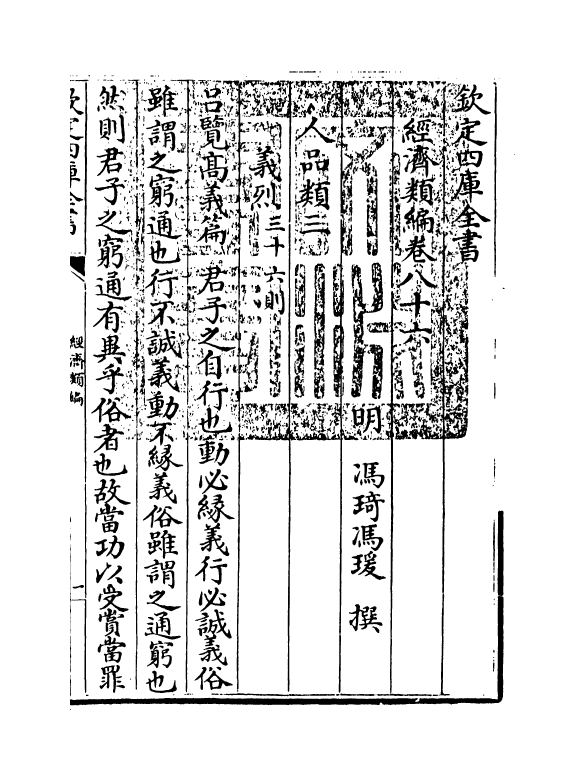 欽定四庫全書
經濟類編卷八十六
明 馮琦馮瑗 撰
人品類三
義烈三十六則
呂覽高義篇 君子之自行也動必緣義行必誠義俗
雖謂之窮通也行不誠義動不緣義俗雖謂之通窮也
然則君子之窮通有異乎俗者也故當功以受賞當罪
欽定四庫全書
經濟類編
一